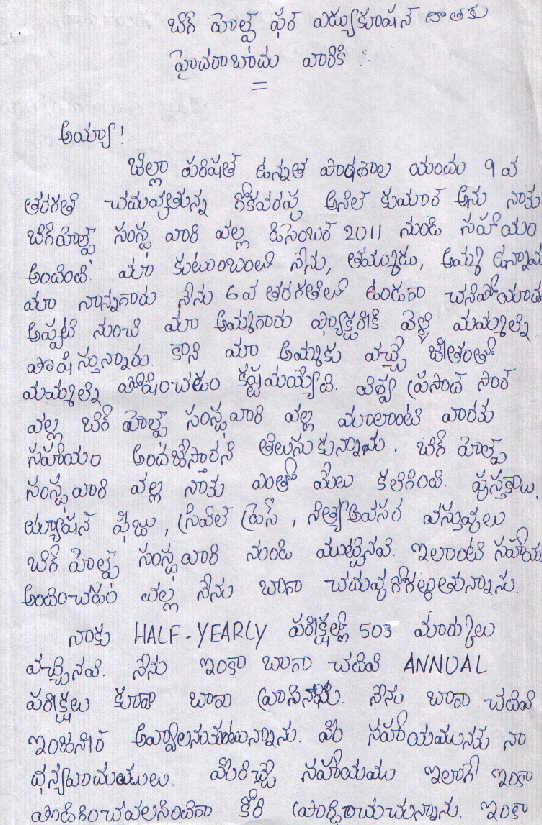 బిగ్ హెల్ప్ ఫర్ ఎడ్యుకేషన్ దాతకు
హైదరాబాదు వారికి :
అయ్యా!
జిల్లా పరిషత్ ఉన్నత పాఠశాల యందు 9 వ
తరగతి చదువుతున్న అనిల్ కుమార్ అను నాకు
బిగ్ హెల్ప్ సంస్థ వారి వల్ల డిసెంబర్ 2011 నుండి సహాయం
అందింది. మా కుటుంబంలో నేను, తమ్ముడు, అమ్మ ఉన్నాము
మా నాన్నగారు నేను 6వ తరగతిలో ఉండగా చనిపోయారు
అప్పటి నుంచి మా అమ్మగారు ఫ్యాక్టరీకి వెళ్లి మమ్మల్ని
పోషిస్తున్నారు కాని మా అమ్మకు వచ్చే జీతంతో
మమ్మల్ని పోషించటం కష్టమయ్యేది. విశ్వ ప్రసాద్ సార్
వల్ల బిగ్ హెల్ప్ సంస్థవారి వల్ల మాలాంటి వారికు
సహాయం అందజేస్తారని తెలుసుకున్నాను. బిగ్ హెల్ప్
సంస్థవారి వల్ల నాకు ఎంతో మేలు కలిగింది. పుస్తకాలు,
ట్యూషన్ ఫీజు, సివిల్ డ్రెస్, నిత్యావసర వస్తువులు
బిగ్ హెల్ప్ సంస్థవారి నుండి ముట్టినవి. ఇలాంటి సహాయం
అందించటం వల్ల నేను బాగా చదువుకోగల్గుతున్నాను.
నాకు HALF-YEARLY పరీక్షల్లో 503 మార్కులు
వచ్చినవి. నేను ఇంకా బాగా చదివి ANNUAL
పరీక్షలు కూడా బాగా వ్రాసినాను. నేను బాగా చదివి
ఇంజనీర్ అవ్వాలనుకుంటున్నాను. మీ సహాయమునకు నా
ధన్యవాదములు. మీరిచ్చే సహాయము ఇలాగే ఇంకా
పొడిగించవలసిందిగా కోరి ప్రార్థించుచున్నాను. ఇంకా